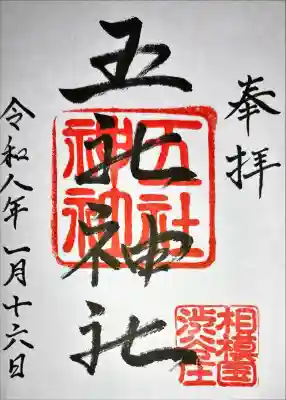 奉拝
五社神社
五社神神
相模国渋谷庄
令和八年一月十六日